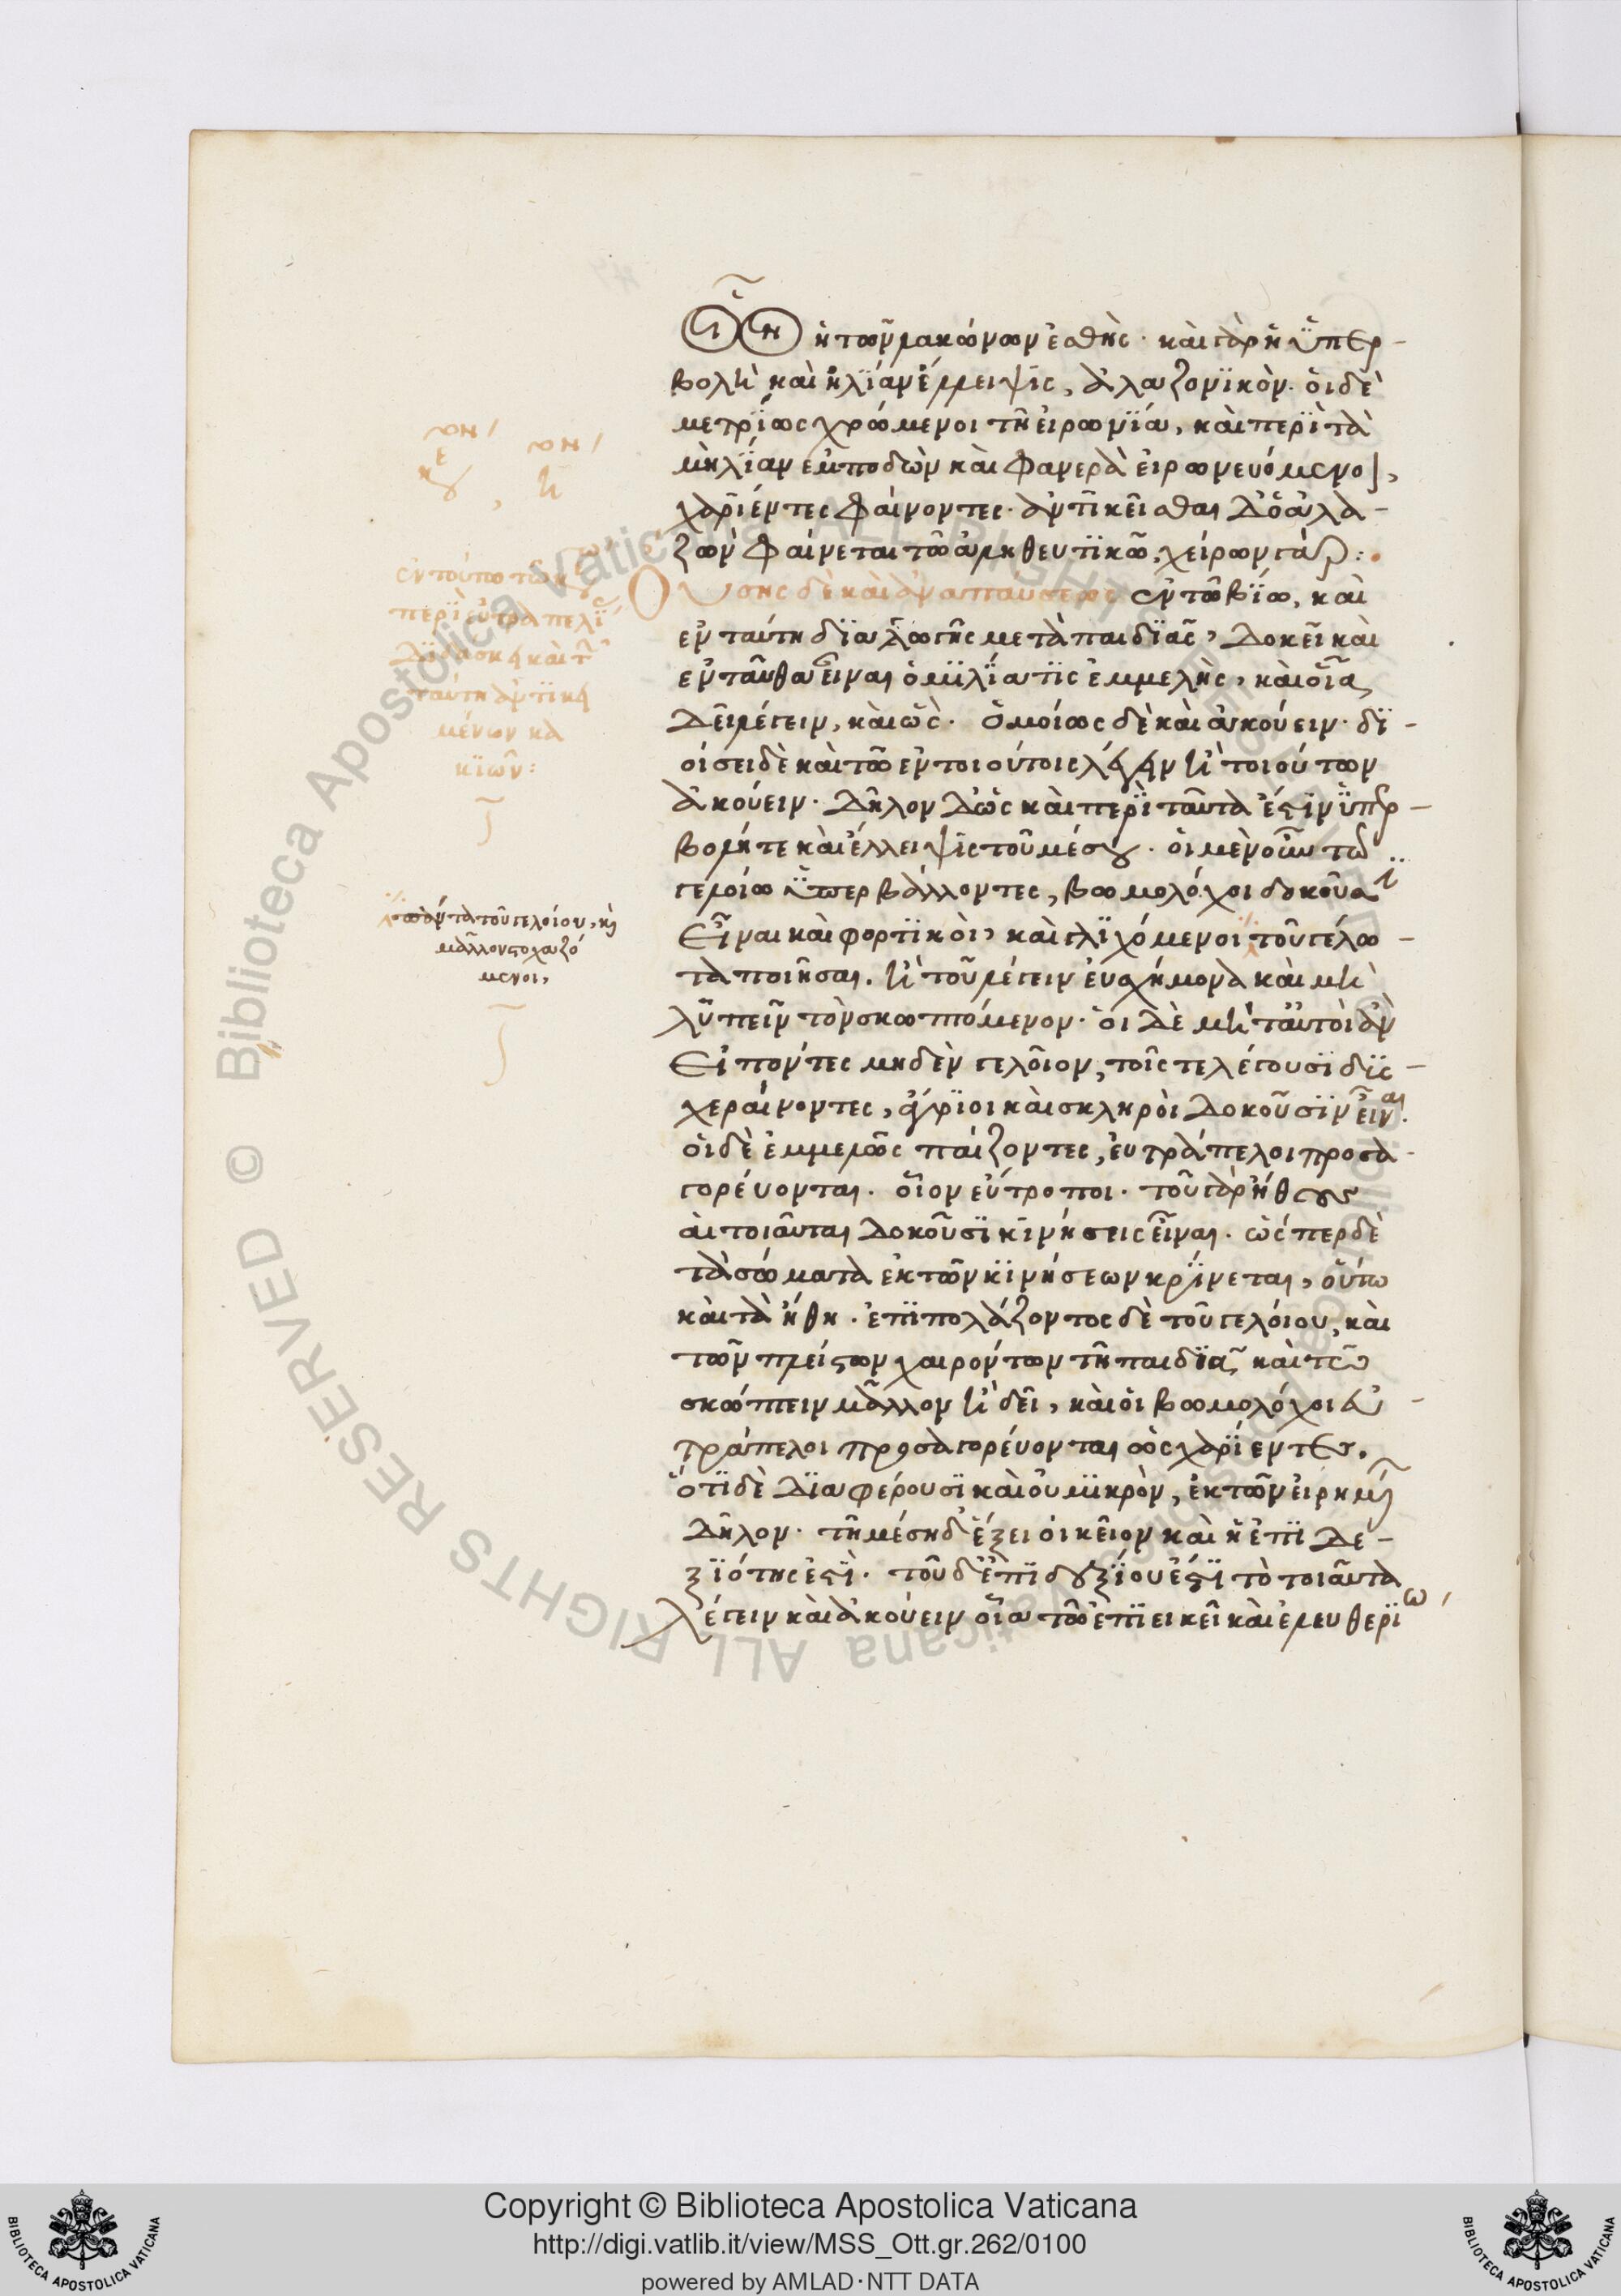 οἷον ἡ τῶν λακώνων ἐσθὴς · καὶ γὰρ ἡ ὑπερ-
βολὴ καὶ ἡ λίαν ἔλλειψις, ἀλαζονικὸν · οἱ δὲ
μετρίως χρώμενοι τῆ εἰρωνία, καὶ περὶ τὰ
μὴ λίαν ἐμποδὼν καὶ φανερὰ εἰρωνευόμενοι,
χαρίεντες φαίνοντες · ἀντικεῖσθαι δ' ὁ ἀλα-
ζὼν φαίνεται τῶ ἀληθευτικῶ, χείρων γάρ :
Οὔσης δὲ καὶ ἀναπαύσεως ἐν τῶ βίω, καὶ
ἐν ταύτη διαγωγῆς μετὰ παιδιᾶς, δοκεῖ καὶ
ἐνταῦθα εἶναι ὁμιλία τις ἐμμελὴς, καὶ οἷα
δεῖ λέγειν, καὶ ὡς · ὁμοίως δὲ καὶ ἀκούειν · δι-
οίσει δὲ καὶ τῶ ἐν τοιούτοις λέγειν ἢ τοιούτων
ἀκούειν · δῆλον δ' ὡς καὶ περὶ ταῦτα ἐστὶν ὑπερ-
βολή τε καὶ ἔλλειψις τοῦ μέσου · οἱ μὲν οὖν τῶ
γελοίω ὑπερβάλλοντες, βωμολόχοι δοκοῦσι
εἶναι καὶ φορτικοὶ, καὶ γλιχόμενοι τοῦ γέλω-
τα ποιῆσαι. ἢ τοῦ λέγειν εὐσχήμονα καὶ μὴ
λυπεῖν τὸν σκωπτόμενον · οἱ δὲ μήτ' αὐτοὶ ἂν
εἰπόντες μηδὲν γελοῖον, τοῖς τε λέγουσι δυσ-
χεραίνοντες, ἄγριοι καὶ σκληροὶ δοκοῦσιν εἶναι.
οἱ δὲ ἐμμελῶς παίζοντες, εὐτράπελοι προσα-
γορεύονται · οἷον εὔτροποι · τοῦ γὰρ ἤθους
αἱ τοιαῦται δοκοῦσι κινήσεις εἶναι · ὥσπερ δὲ
τὰ σώματα ἐκ τῶν κινήσεων κρίνεται, οὕτω
καὶ τὰ ἤθη · ἐπιπολάζοντος δὲ τοῦ γελοίου, καὶ
τῶν πλείστων χαιρόντων τῆ παιδιᾶ καὶ τῶ
σκώπτειν μᾶλλον ἢ δεῖ, καὶ οἱ βωμολόχοι εὐ-
τράπελοι προσαγορεύονται ὡς χαρίεντες.
ὅτι δὲ διαφέρουσι καὶ οὐ μικρὸν, ἐκ τῶν εἰρημένων
δῆλον · τῆ μέση δ' ἕξει οἰκεῖον καὶ ἡ ἐπιδε-
ξιότης ἐστὶ · τοῦ δ' ἐπιδεξίου ἐστὶ τὸ τοιαῦτα
λέγειν καὶ ἀκούειν οἷα τῶ ἐπιεικεῖ καὶ ἐλευθερίω
ἐν τούτω τῶ
περὶ εὐτραπελί
διδάσκει καὶ τ
ταύτη ἀντικει
μένων κα
κιῶν :
πάντα τοῦ γελοίου, καὶ
μᾶλλον στοχαζό
μενοι,
Copyright © Biblioteca Apostolica Vaticana
http://digi.vatlib.it/view/MSS_Ott.gr.262/0100
powered by AMLAD·NTT DATA
BIBLIOTECA APOSTOLICA VATICANA
BIBLIOTECA APOSTOLICA VATICANA
© Biblioteca Apostolica Vaticana ALL RIGHTS RESERVED